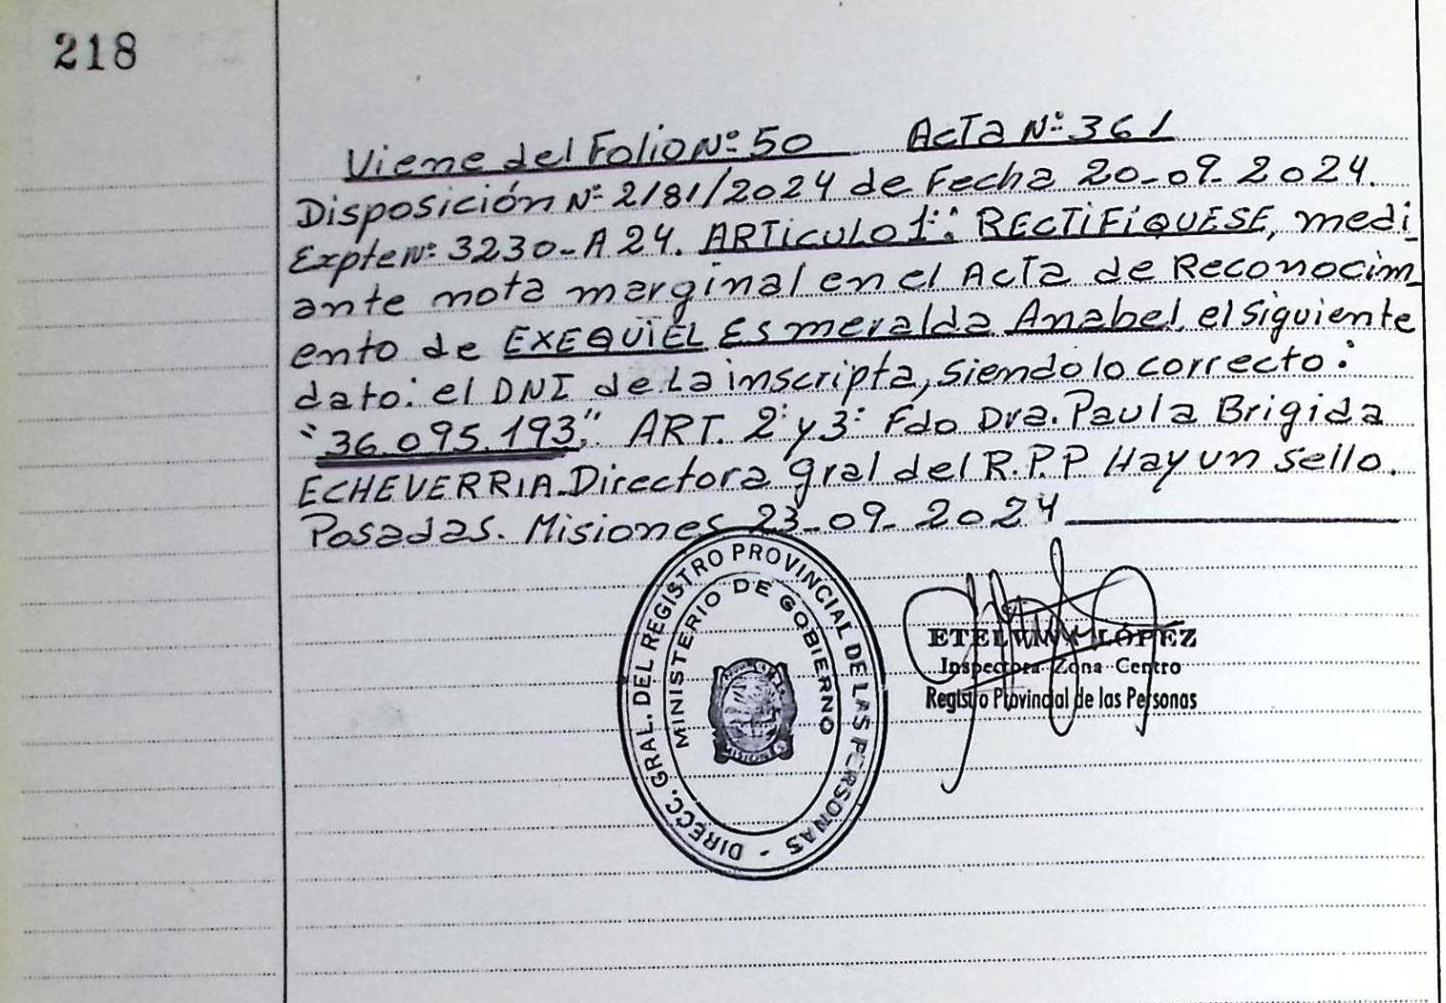 218
Viene del Folio Nº 50 Acta Nº 361
Disposición Nº 2181/2024 de Fecha 20-09-2024.
Expte Nº 3230-A 24. ARTiculo 1º: RECTiFiQUESE, medi_
ante nota marginal en el Acta de Reconocim_
ento de EXEQUIEL Esmeralda Anabel, el siguiente
dato: el DNI de la inscripta, siendo lo correcto:
"36.095.193". ART. 2º y 3º Fdo Dra. Paula Brigida
ECHEVERRIA. Directora gral del R.P.P Hay un sello.
Posadas. Misiones 23-09-2024
DIRECC. GRAL. DEL REGISTRO PROVINCIAL DE LAS PERSONAS -
MINISTERIO DE GOBIERNO
LÓPEZ
Inspectora Zona Centro
Registro Provincial de las Personas